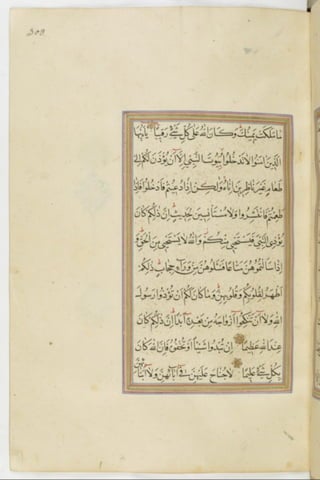 ما ملكت يمينك وكان الله على كل شيء رقيبا يا ايها
الذين امنوا لا تدخلوا بيوت النبي الا ان يؤذن لكم الى
طعام غير ناظرين اناه ولكن اذا دعيتم فادخلوا فاذا
طعمتم فانتشروا ولا مستانسين لحديث ان ذلكم كان
يؤذي النبي فيستحيي منكم والله لا يستحيي من الحق و
اذا سالتموهن متاعا فسئلوهن من وراء حجاب ذلكم
اطهر لقلوبكم وقلوبهن وما كان لكم ان تؤذوا رسول
الله ولا ان تنكحوا ازواجه من بعده ابدا ان ذلكم كان
عند الله عظيما ان تبدوا شيئا او تخفوه فان الله كان
بكل شيء عليما لا جناح عليهن في ابائهن ولا ابنائهن